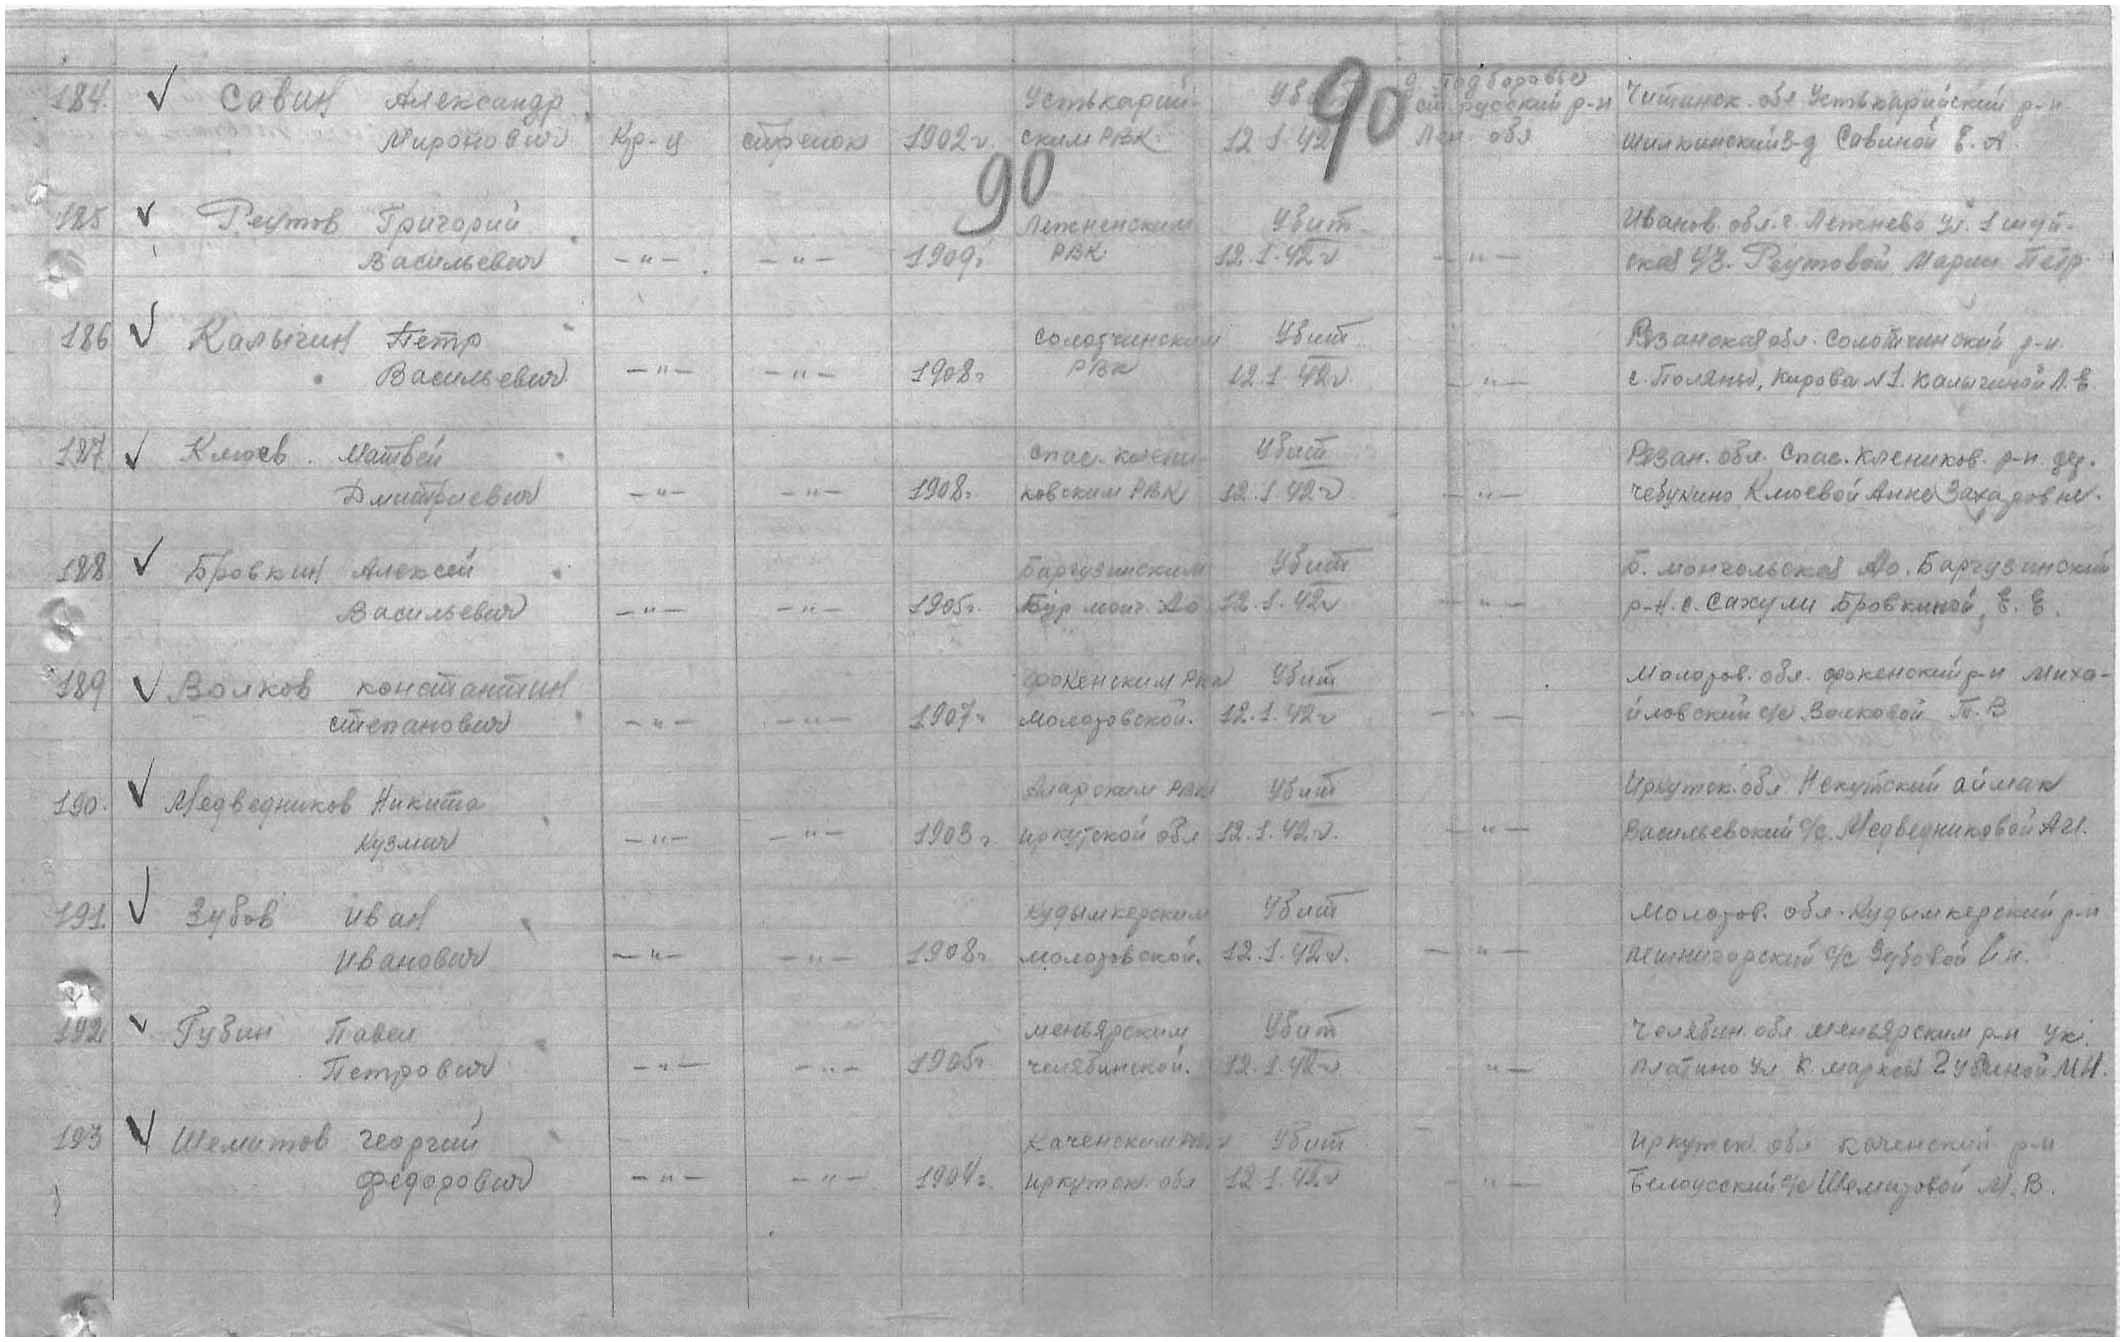 184. Савин Александр Устькарий- Убит д. Подборовье Читинск. обл Устькарийский р-н
Миронович Кр-ц стрелок 1902г ским РВК. 12.1.42 ст. русский р-н Лен. обл Шилкинский з-д Савиной Е. А.
90
90
185 Реутов Григорий Лежненским Убит Иванов. обл. г. Лежнево ул. 1 шуй-
Васильевич -"- -"- 1909г РВК 12.1.42г -"- ская Реутовой Марии Петр.
186 Калыгин Петр Солотчинским Убит Рязанская обл. Солотчинский р-н
Васильевич -"- -"- 1908г РВК 12.1.42г -"- с. Поляны, Кирова №1. Калыгиной А.Е.
187 Клюев Матвей Спас. клепи- Убит Рязан. обл. Спас. Клепиков. р-н дер.
Дмитриевич -"- -"- 1908г ковским РВК 12.1.42г -"- Чебукино Клюевой Анне Захаровне.
188 Бровкин Алексей Баргузинским Убит Б. монгольская Ао. Баргузинский
Васильевич -"- -"- 1905г. Бур монг. Ао 12.1.42г -"- р-н. с. Сахули Бровкиной Е. Е.
189 Волков Константин фокенским РВК Убит Молотов. обл. фокенский р-н Миха-
Степанович -"- -"- 1907г Молотовской. 12.1.42г -"- йловский с/с Волковой Т. В
190. Медведников Никита Аларским РВК Убит Иркутск. обл Некутский аймак
Кузмич -"- -"- 1903г Иркутской обл 12.1.42г. -"- Васильевский с/с. Медведниковой А.И.
191. Зубов Иван Кудымкерским Убит Молотов. обл. Кудымкерский р-н
Иванович -"- -"- 1908г Молотовской. 12.1.42г. -"- пешнигорский с/с Зубовой
192 Губин Павел меньярским Убит Челябин. обл меньярским р-н
Петрович -"- -"- 1905г челябинской. 12.1.42г -"- платино ул К. маркса Губиной М.И.
193 Шеметов Георгий Каченским РВК Убит Иркутск. обл каченский р-н
федорович -"- -"- 1904г. Иркутск. обл 12.1.42г -"- Белоусский с/с Шеметовой М. В.